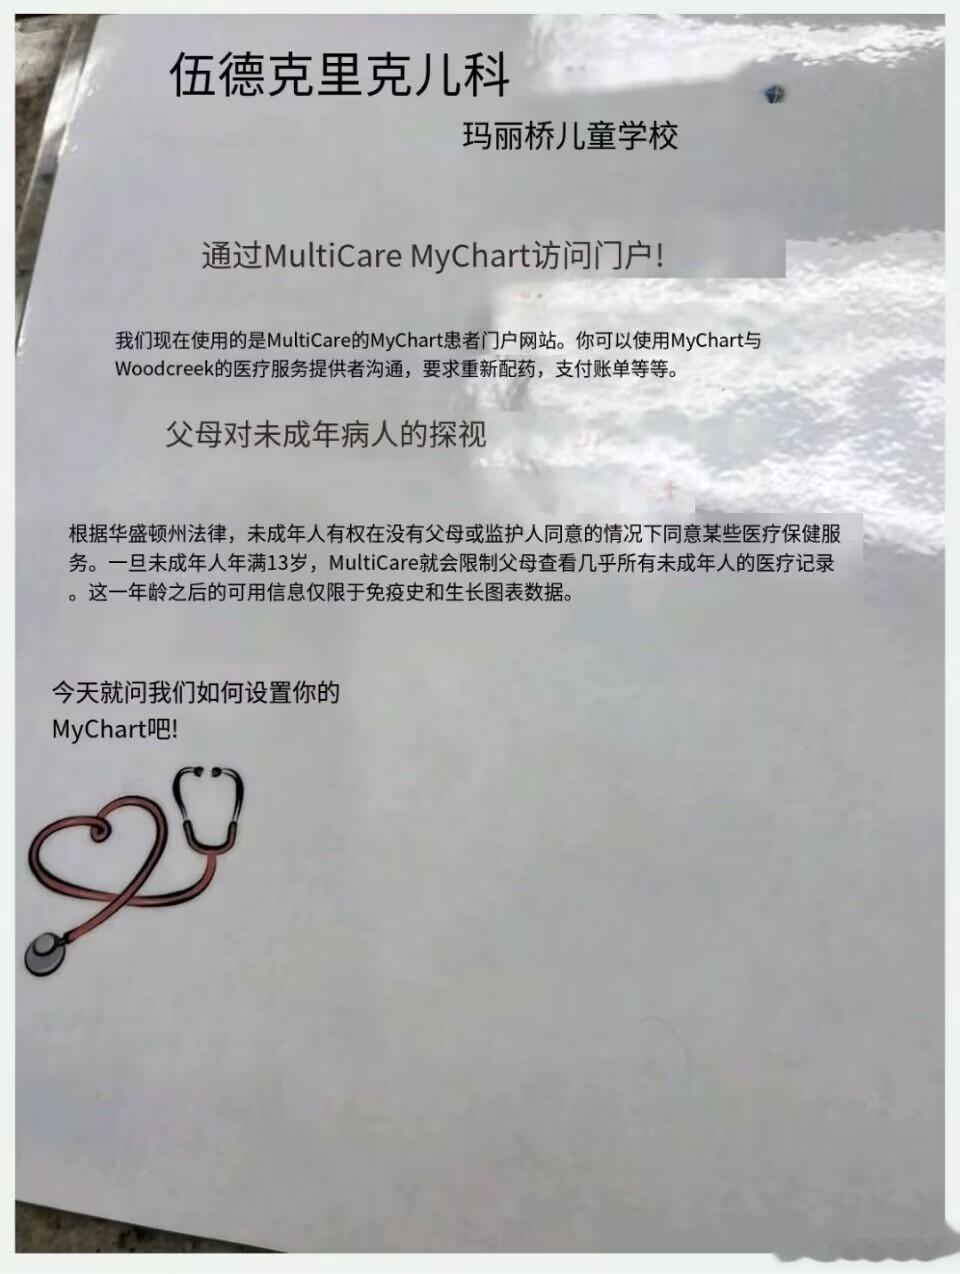 伍德克里克儿科
玛丽桥儿童学校
通过MultiCare MyChart访问门户!
我们现在使用的是MultiCare的MyChart患者门户网站。你可以使用MyChart与
Woodcreek的医疗服务提供者沟通，要求重新配药，支付账单等等。
父母对未成年病人的探视
根据华盛顿州法律，未成年人有权在没有父母或监护人同意的情况下同意某些医疗保健服
务。一旦未成年人年满13岁，MultiCare就会限制父母查看几乎所有未成年人的医疗记录
。这一年龄之后的可用信息仅限于免疫史和生长图表数据。
今天就问我们如何设置你的
MyChart吧!